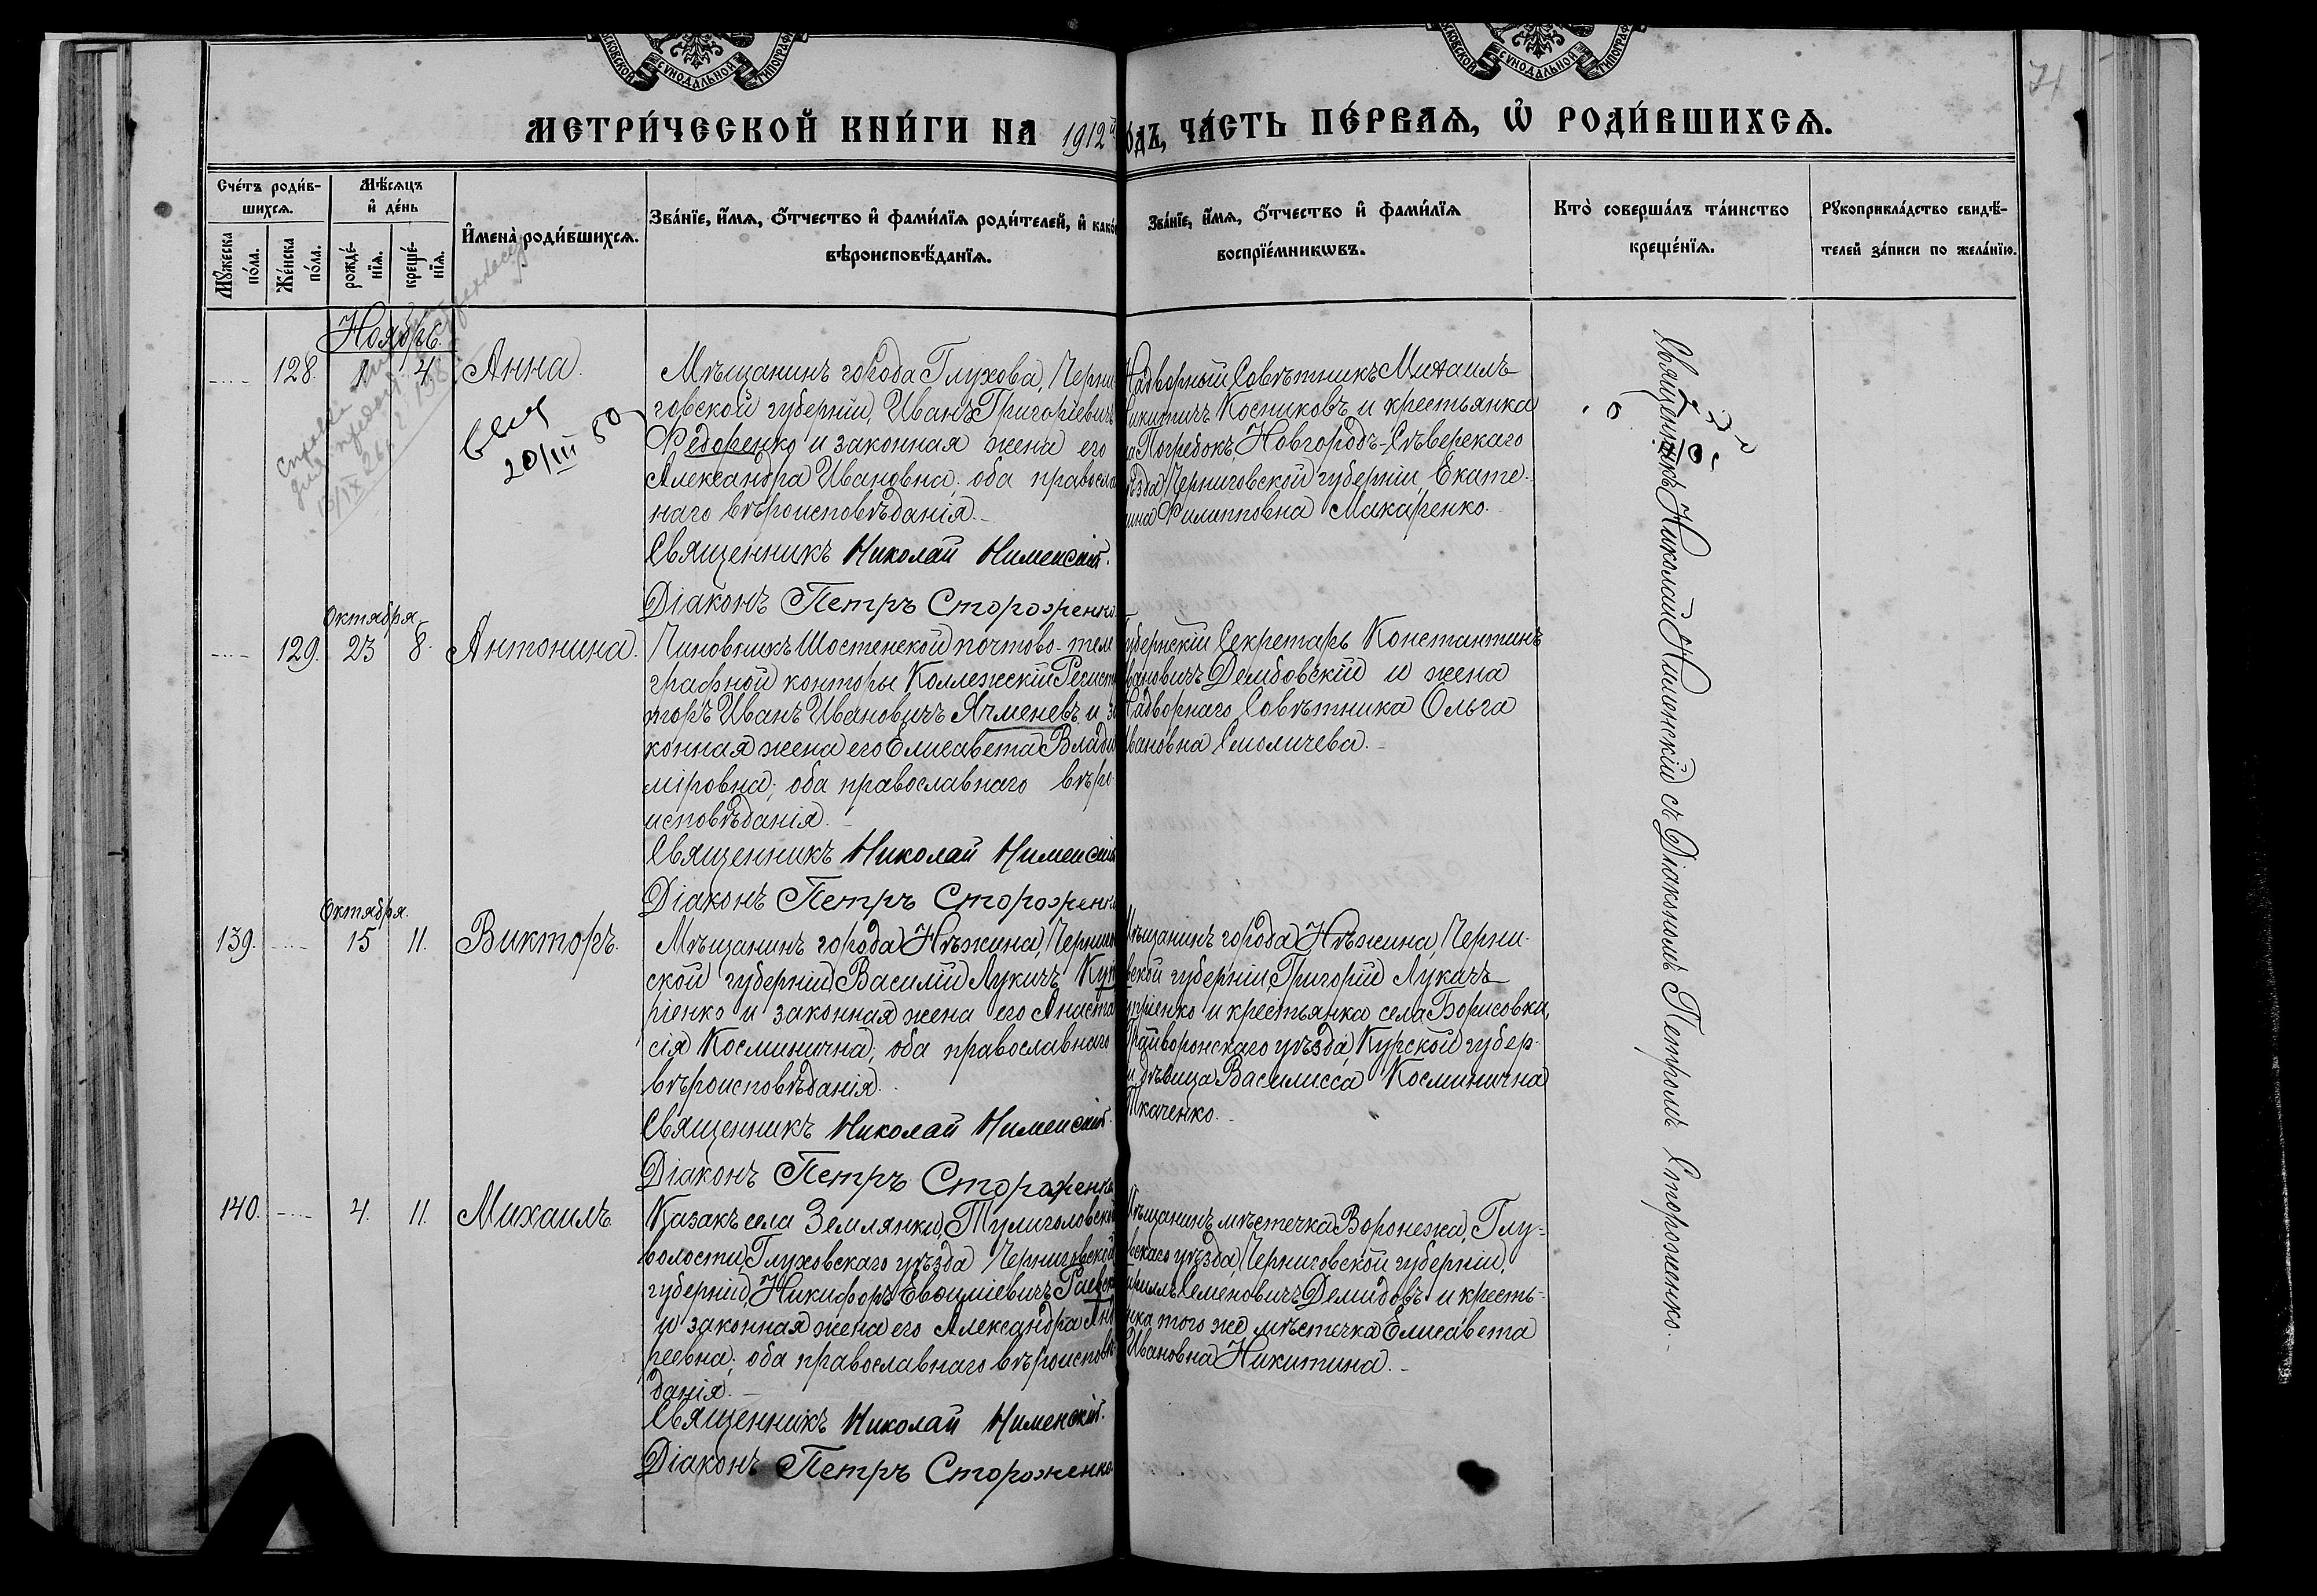 МОСКОВСКОЙ СѴНОДАЛЬНОЙ ТИПОГРАФ
СѴНОДАЛЬНОЙ ТИПОГРАФ
МЕТРИ́ЧЕСКОЙ КНИ́ГИ НА 1912й
ОДЪ, ЧА́СТЬ ПЕ́РВАѦ, Ѡ҆ РОДИ́ВШИХСѦ.
71
Сче́тъ роди́в-
шихсѧ.
Мꙋ́жеска по́ла.
Же́нска по́ла.
Мѣ́сѧцъ
и҆ де́нь
рожде́-
нїѧ.
креще́-
нїѧ.
И҆мена̀ роди́вшихсѧ.
Зва́нїе, и҆́мѧ, ѻ҆́тчество и҆ фами́лїѧ роди́телей, и҆ како́
вѣроисповѣ́данїѧ.
Зва́нїе, и҆́мѧ, ѻ҆́тчество и҆ фами́лїѧ
воспрїе́мникѡвъ.
Кто̀ соверша́лъ та́инство
креще́нїѧ.
Рꙋкоприкла́дство свидѣ́-
телей за́писи по жела́нїю.
Ноябрь.
128. 1 4 Анна.
20/III 50
Мѣщанинъ города Глухова, Черни
говской губерніи, Иванъ Григоріевичъ
Ѳедоренко и законная жена его
Александра Ивановна; оба правосла
наго вѣроисповѣданія.
Священникъ Николай Нименскій.
Діаконъ Петръ Стороженко.
Надворный Совѣтникъ Михаилъ
икитичъ Косниковъ и крестьянка
а Погребокъ Новгородъ-Сѣверскаго
ѣзда Черниговской губерніи, Екате-
ина Филипповна Макаренко.
Октября
129. 23 8. Антонина.
Чиновникъ Шостенской почтово-теле
графной конторы Коллежскій Регист
торъ Иванъ Ивановичъ Ячменевъ и за
конная жена его Елисавета Влади
міровна; оба православнаго вѣро
исповѣданія.
Священникъ Николай Нименскій
Діаконъ Петръ Стороженко
убернскій Секретарь Константинъ
вановичъ Дембовскій и жена
Надворнаго Совѣтника Ольга
вановна Смоличева.
Октября.
139. 15 11. Викторъ.
Мѣщанинъ города Нѣжина, Чернигов
ской губерніи Василій Лукичъ Куп
ріенко и законная жена его Анаста
сія Косминична; оба православнаго
вѣроисповѣданія.
Священникъ Николай Нименскій.
Діаконъ Петръ Стороженко
Мѣщанинъ города Нѣжина, Черни-
вской губерніи, Григорій Лукичъ
упріенко и крестьянка села Борисовки,
Грайворонскаго уѣзда, Курской губер-
и дѣвица Василисса Косминична
Ткаченко.
140. 4. 11. Михаилъ.
Казакъ села Землянки, Тулиголовской
волости, Глуховскаго уѣзда Черниговской
губерніи, Никифоръ Евѳиміевичъ Раевск
и законная жена его Александра Анд
реевна; оба православнаго вѣроисповѣ
данія.
Священникъ Николай Нименскій.
Діаконъ Петръ Стороженко
Мѣщанинъ мѣстечка Воронежа, Глу-
вскаго уѣзда, Черниговской губерніи,
ириллъ Семеновичъ Демидовъ и кресть-
нка того же мѣстечка Елисавета
Ивановна Никитина.
Священникъ Николай Нименскій съ Діакономъ Петромъ Стороженко.